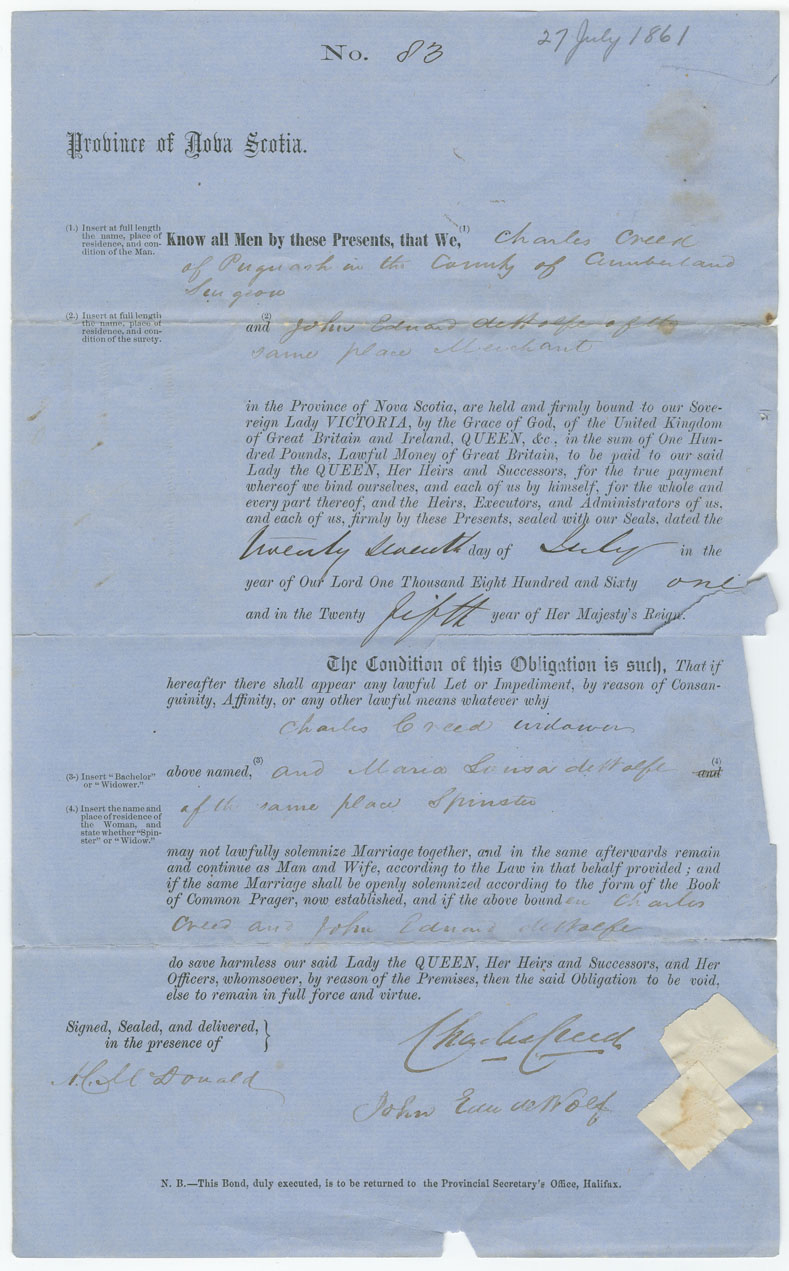 27 July 1861
No. 83
Province of Nova Scotia.
(1.) Insert at full length
the name, place of
residence, and con-
dition of the Man.
Know all Men by these Presents, that We, (1) Charles Creed
of Pugwash in the County of Cumberland
Surgeon
(2.) Insert at full length
the name, place of
residence, and con-
dition of the surety.
and (2) John Edward deWolfe of the
same place Merchant
in the Province of Nova Scotia, are held and firmly bound to our Sove-
reign Lady VICTORIA, by the Grace of God, of the United Kingdom
of Great Britain and Ireland, QUEEN, &c., in the sum of One Hun-
dred Pounds, Lawful Money of Great Britain, to be paid to our said
Lady the QUEEN, Her Heirs and Successors, for the true payment
whereof we bind ourselves, and each of us by himself, for the whole and
every part thereof, and the Heirs, Executors, and Administrators of us,
and each of us, firmly by these Presents, sealed with our Seals, dated the
twenty seventh day of July in the
year of Our Lord One Thousand Eight Hundred and Sixty one
and in the Twenty fifth year of Her Majesty's Reign.
The Condition of this Obligation is such, That if
hereafter there shall appear any lawful Let or Impediment, by reason of Consan-
guinity, Affinity, or any other lawful means whatever why
Charles Creed widower
(3.) Insert "Bachelor"
or "Widower."
above named, (3) and Maria Louisa deWolfe and (4)
(4.) Insert the name and
place of residence of
the Woman, and
state whether "Spin-
ster" or "Widow."
of the same place Spinster
may not lawfully solemnize Marriage together, and in the same afterwards remain
and continue as Man and Wife, according to the Law in that behalf provided ; and
if the same Marriage shall be openly solemnized according to the form of the Book
of Common Prager, now established, and if the above bounden Charles
Creed and John Edward deWolfe
do save harmless our said Lady the QUEEN, Her Heirs and Successors, and Her
Officers, whomsoever, by reason of the Premises, then the said Obligation to be void,
else to remain in full force and virtue.
Signed, Sealed, and delivered,
in the presence of
Charles Creed
H. McDonald
John Edw deWolf
N. B.—This Bond, duly executed, is to be returned to the Provincial Secretary's Office, Halifax.